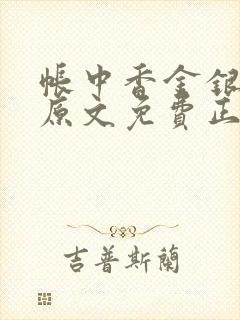 帳中香金銀
原文免費正
吉普斯蘭